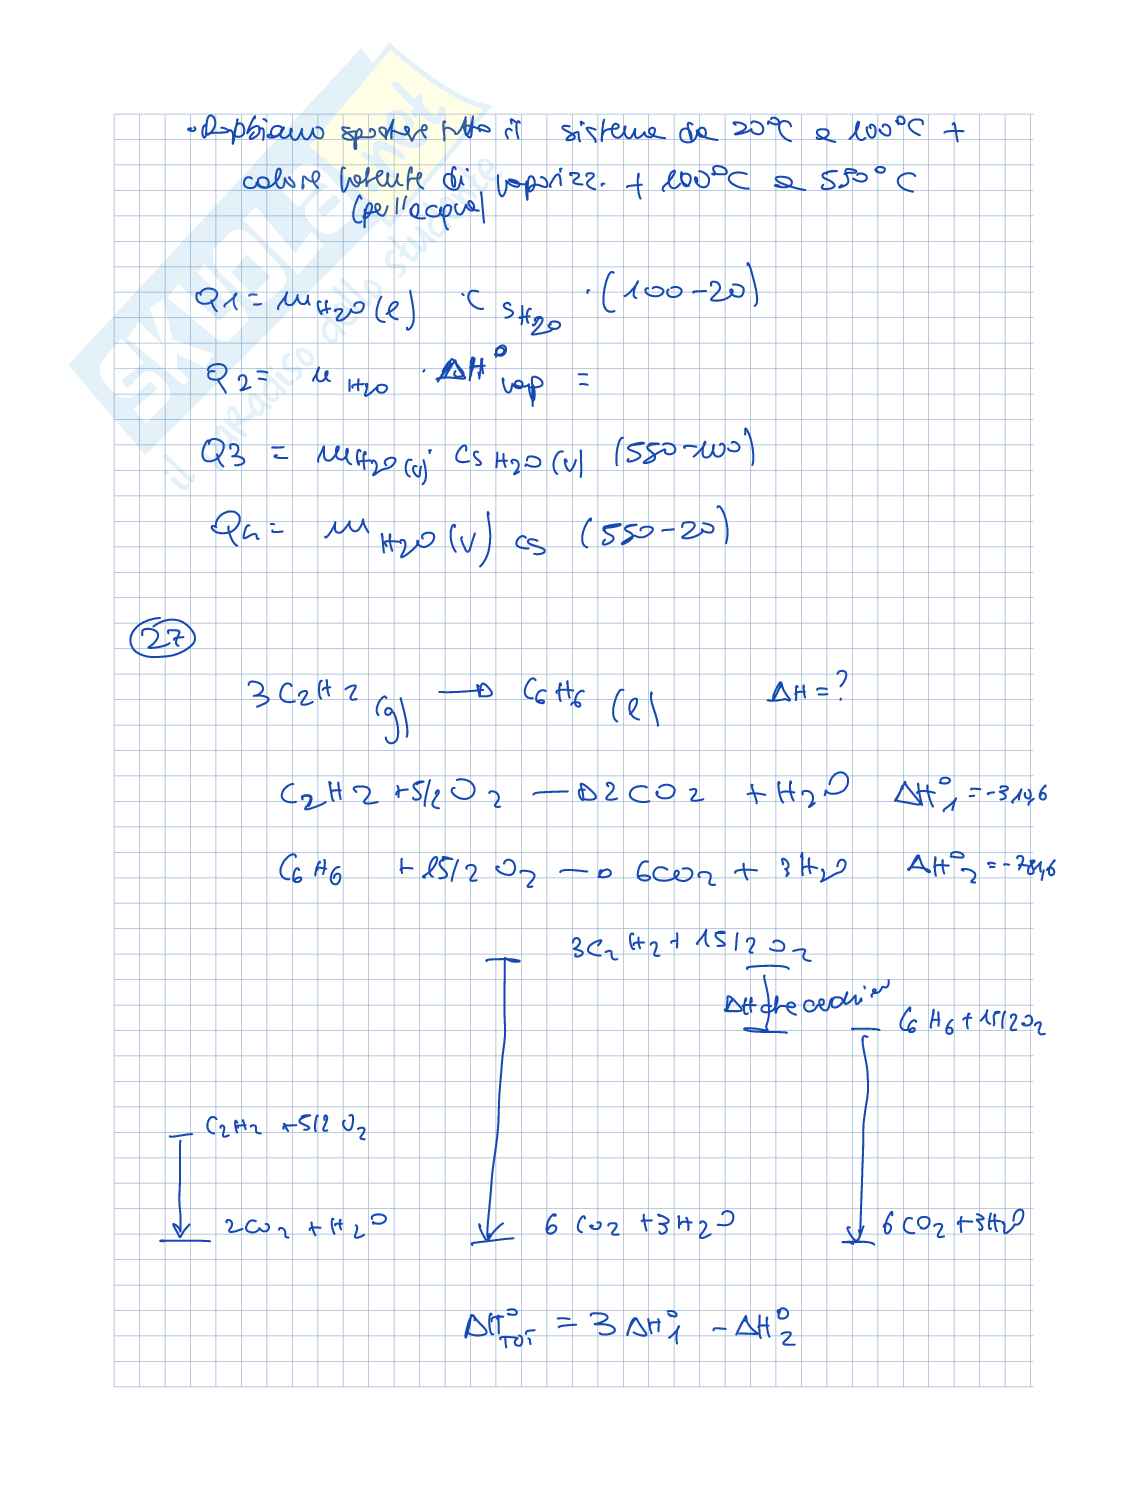 • Dobbiamo spostare tutto il sistema da 20°C a 100°C +
calore latente di vaporizz. + 100°C a 550°C
(per l'acqua)
Q1 = m H2O (l) · C S H2O · (100-20)
Q2 = n H2O · ΔH° vap =
Q3 = m H2O (v) · Cs H2O (v) (550-100)
Q4 = m H2O (v) cs (550-20)
27
3 C2H2 (g) → C6H6 (l) ΔH = ?
C2H2 + 5/2 O2 → 2CO2 + H2O ΔH°1 = -310,6
C6H6 + 15/2 O2 → 6CO2 + 3H2O ΔH°2 = -781,6
3C2H2 + 15/2 O2
ΔH che
C6H6 + 15/2 O2
C2H2 + 5/2 O2
2CO2 + H2O
6 CO2 + 3H2O
6 CO2 + 3H2O
ΔH°TOT = 3 ΔH°1 - ΔH°2
SKUOLA.net
il paradiso dello studente